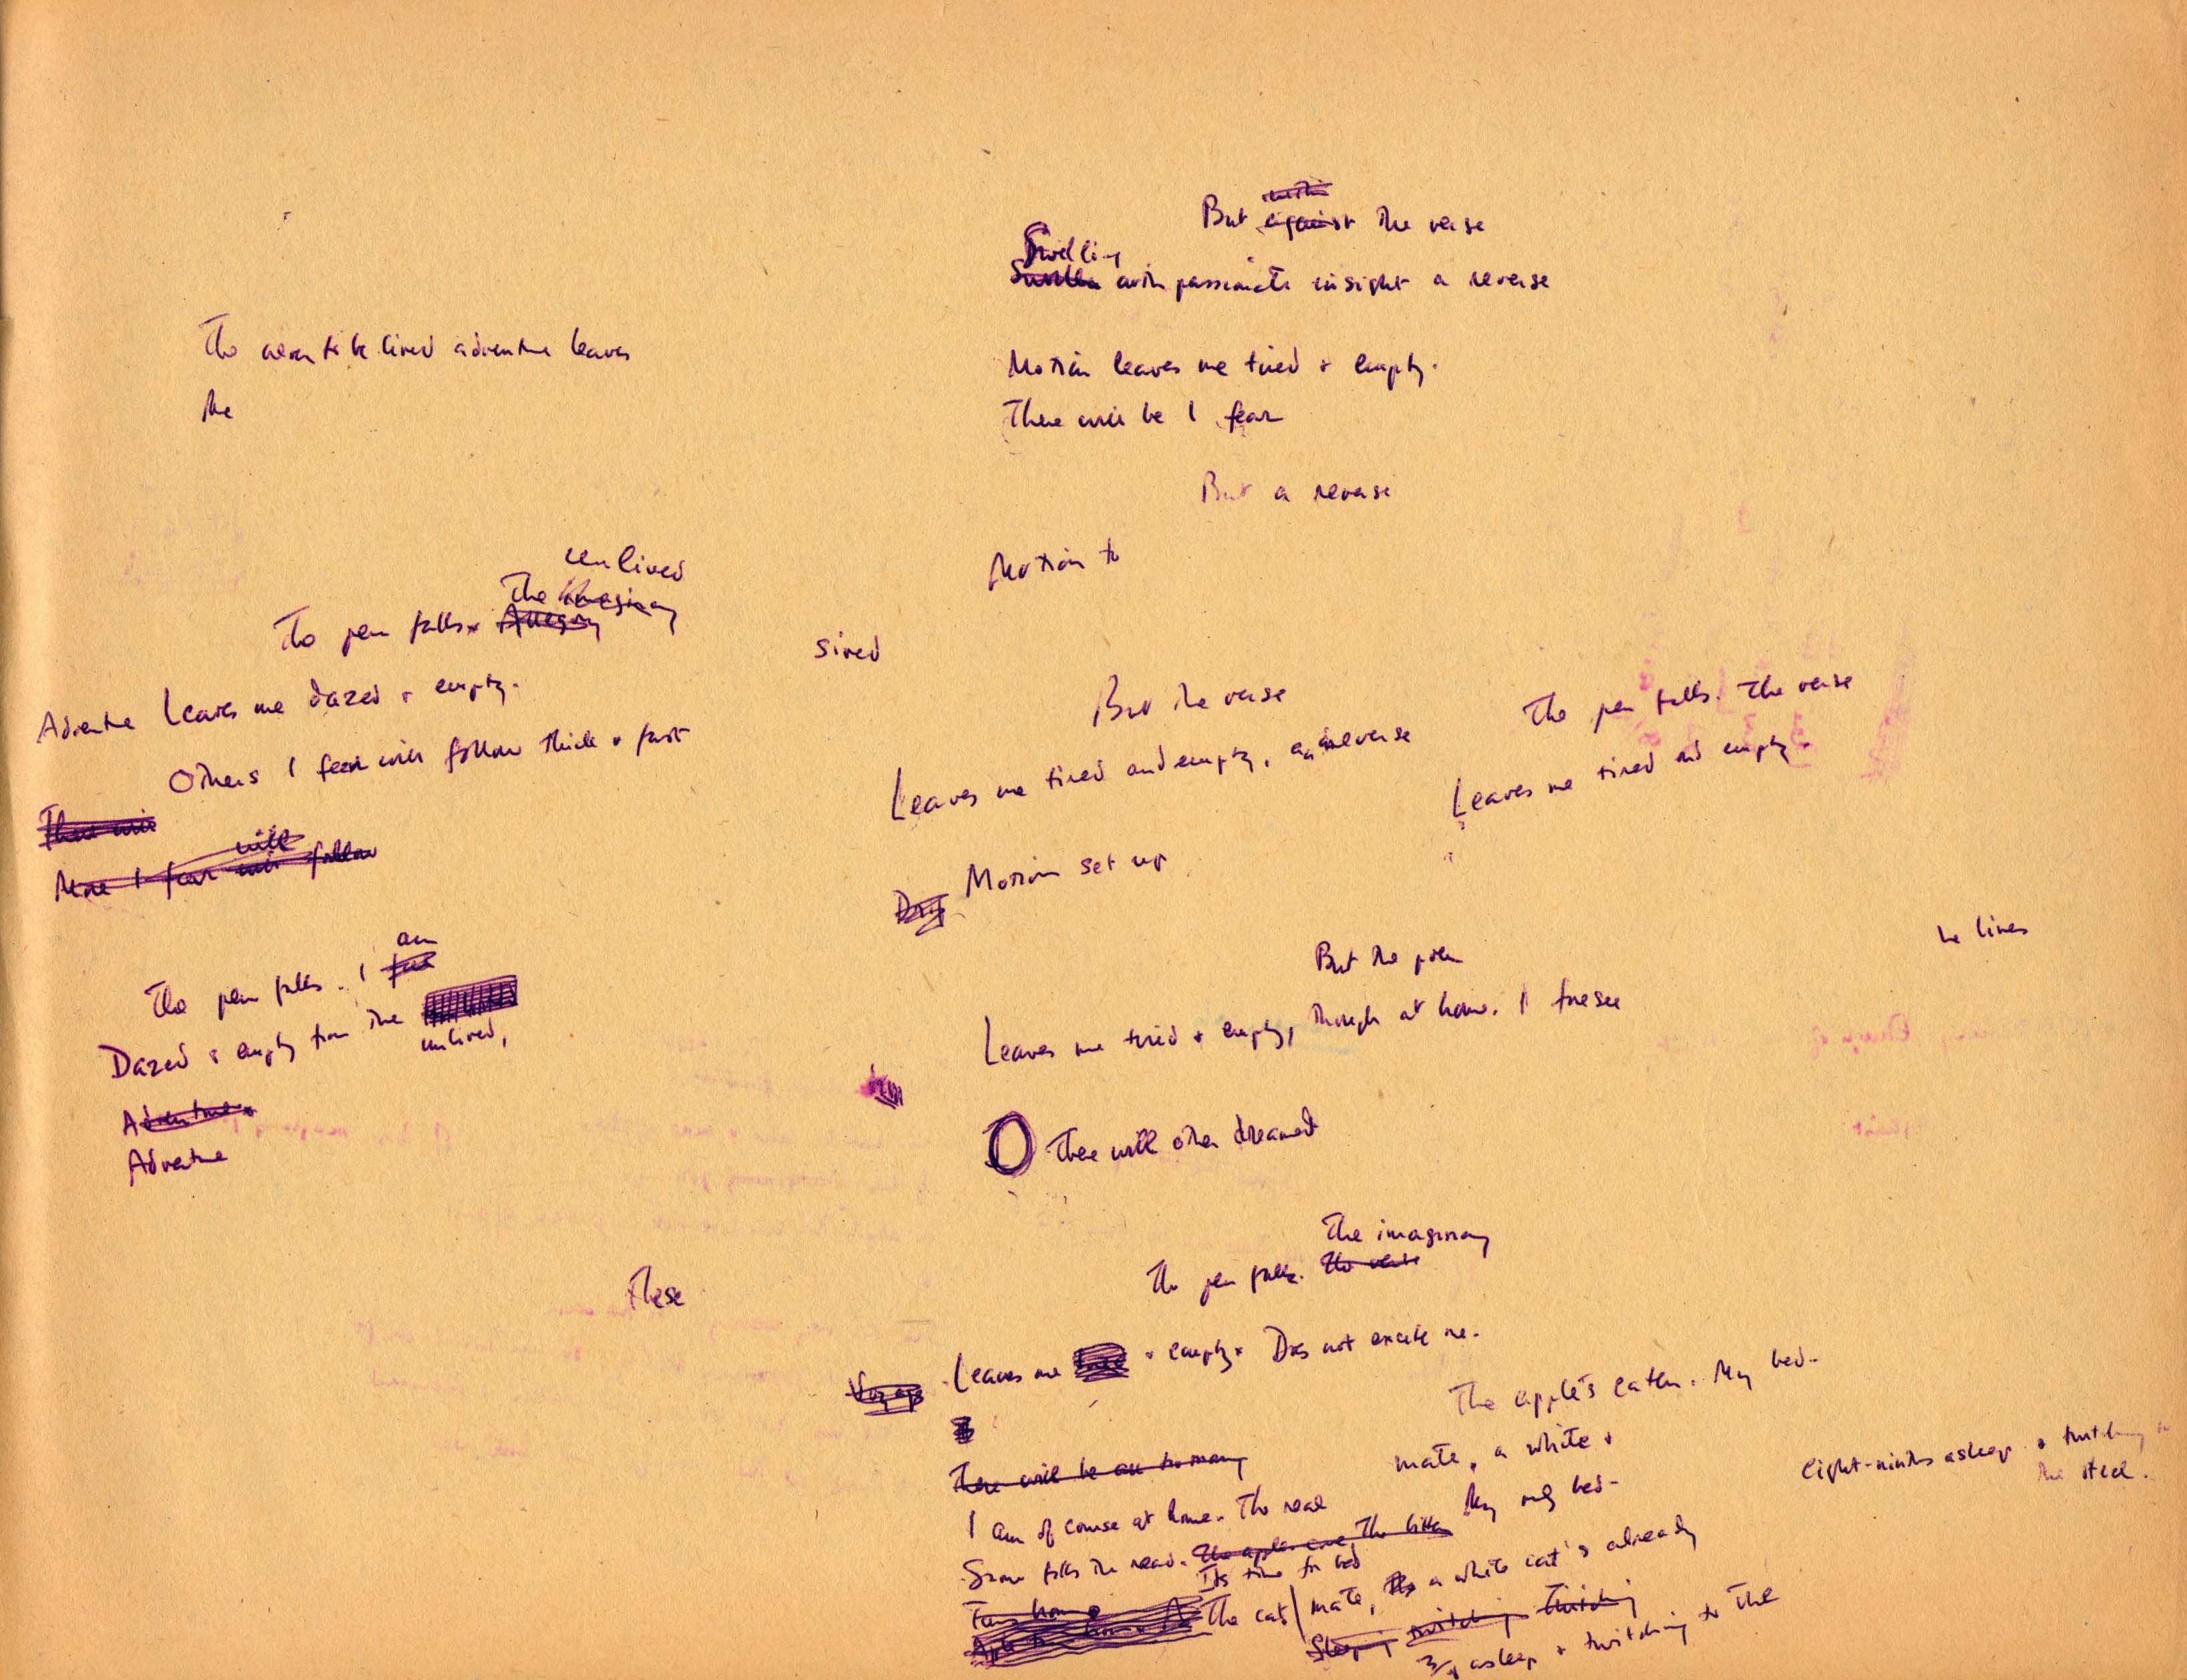 But with against the verse
Swelling
with passionate insight a reverse
The never to be lived adventure leaves
Motion leaves me tired + empty.
the
There will be I fear
But a reverse
unlived
Motion to
The imaginary
The pen falls. Allegory
sired
Adventure Leaves me dazed + empty.
But the verse
The pen falls. The verse
Others I fear will follow thick + fast
Leaves me tired and empty, a reverse
Leaves me tired and empty.
There will
will
More I fear will follow
Motion set up
am
he lives
The pen falls. I
But the poem
Dazed + empty from the
unlived,
Leaves me tired + empty, though at home. I foresee
Adventure
Adventure
O There will other dreamed
The imaginary
The pen falls. The verse
These
Voyage Leaves me + empty. Does not excite me.
The apple's eaten. My bed-
There will be all too many
mate, a white +
Eight-ninths asleep + twitching to
the steel.
I am of course at home. The real
My only bed-
Snow fills the road. The apples are The
Its time for bed
The cat
mate, a white cat's already
Sleeping twitching twitching
asleep + twitching to the